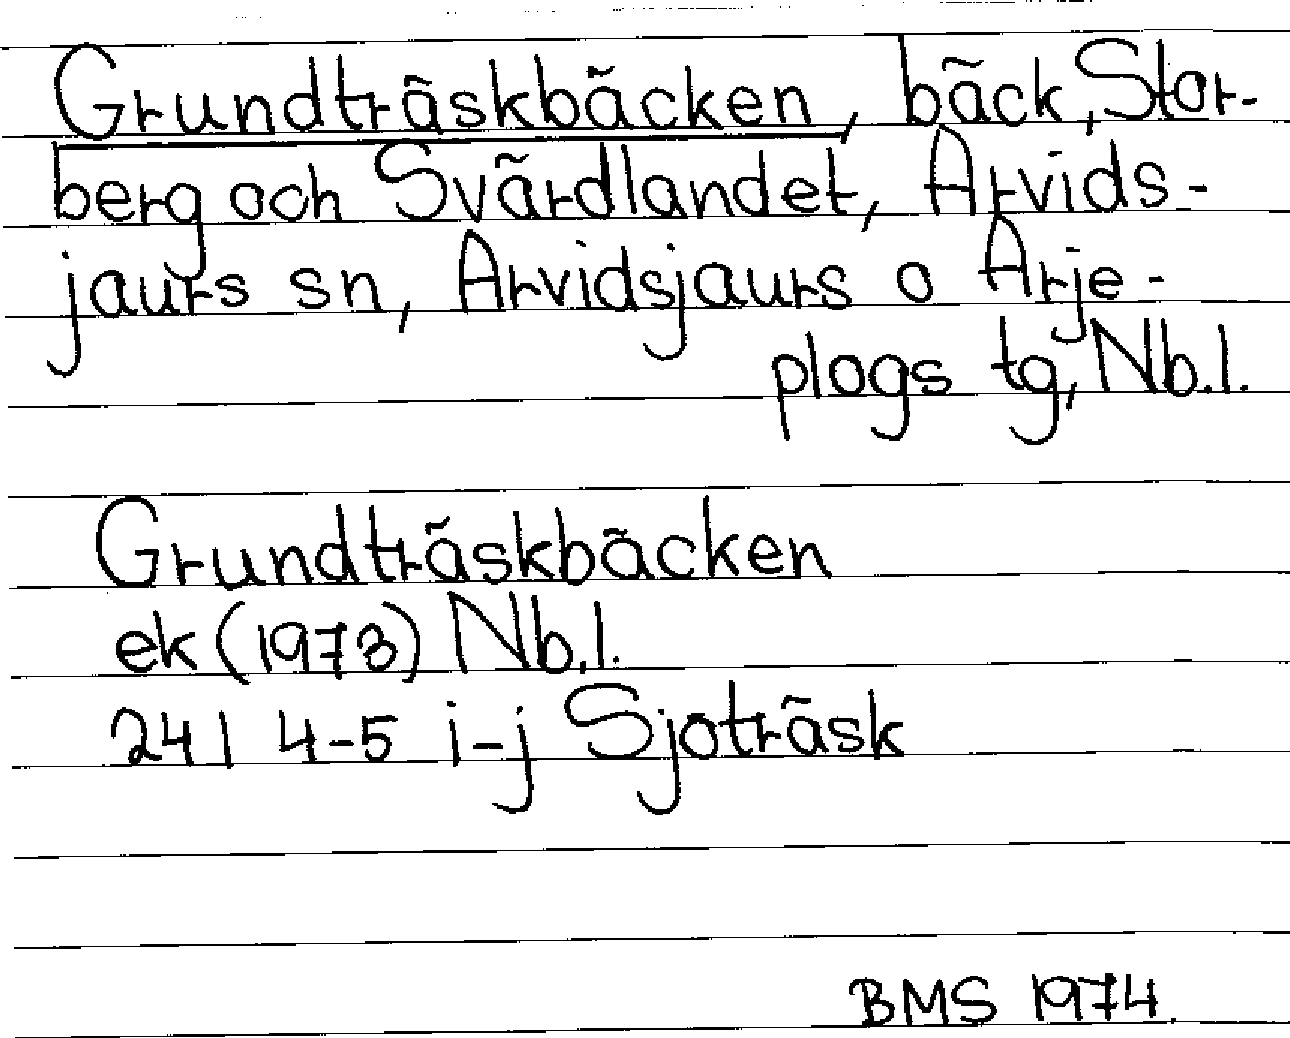 Grundträskbäcken, bäck, Stor-
berg och Svärdlandet, Arvids-
jaurs sn, Arvidsjaurs o Arje-
plogs tg, Nb.l.
Grundträskbäcken
ek (1973) Nb.l.
24 I 4-5 i-j Sjöträsk
BMS 1974.